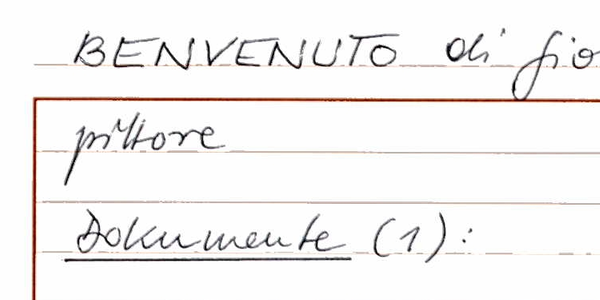 BENVENUTO di Gio
pittore
Dokumente (1):